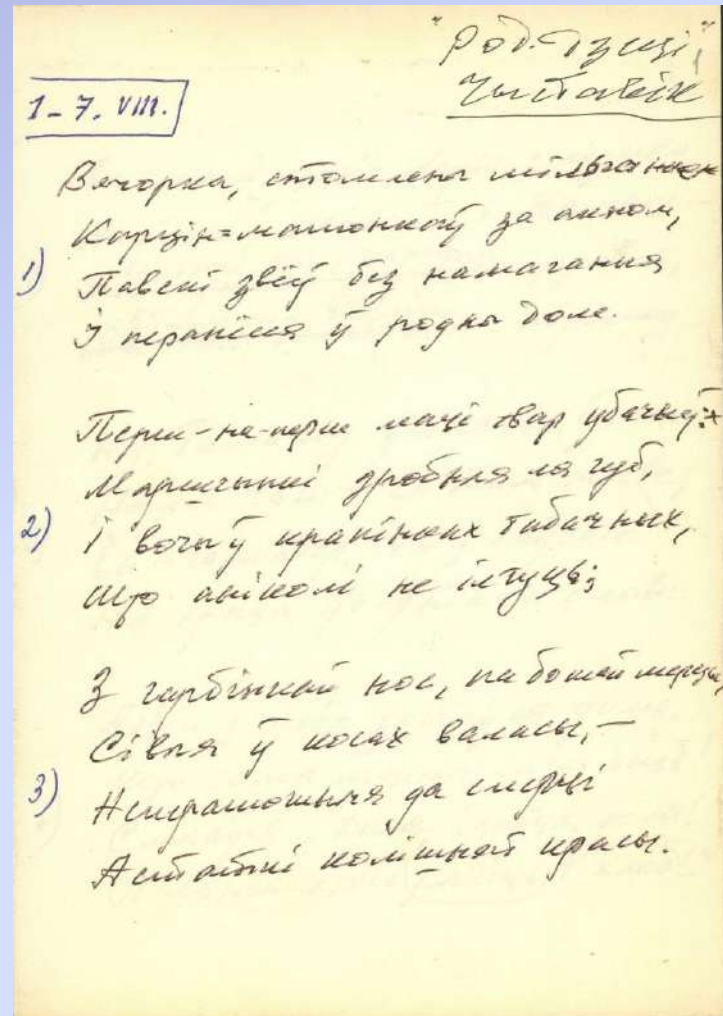 "Род. Дзеці",
Чыставік
1-7. VIII.
Вячорка, стомлены мільганнем
Карцін=малюнкаў за акном,
1)
Павекі звёў без намагання
І перанёсся ў родны дом.
Перш-на-перш мацi твар убачыў:
Маршчынкі дробныя ля губ,
2)
І вочы ў крапінках табачных,
Што ніколі не ілгуць;
З гарбінкай нос, па божай мерцы,
Сівыя ў косах валасы,—
3)
Непераможныя да смерці
Астаткі колішняй красы.